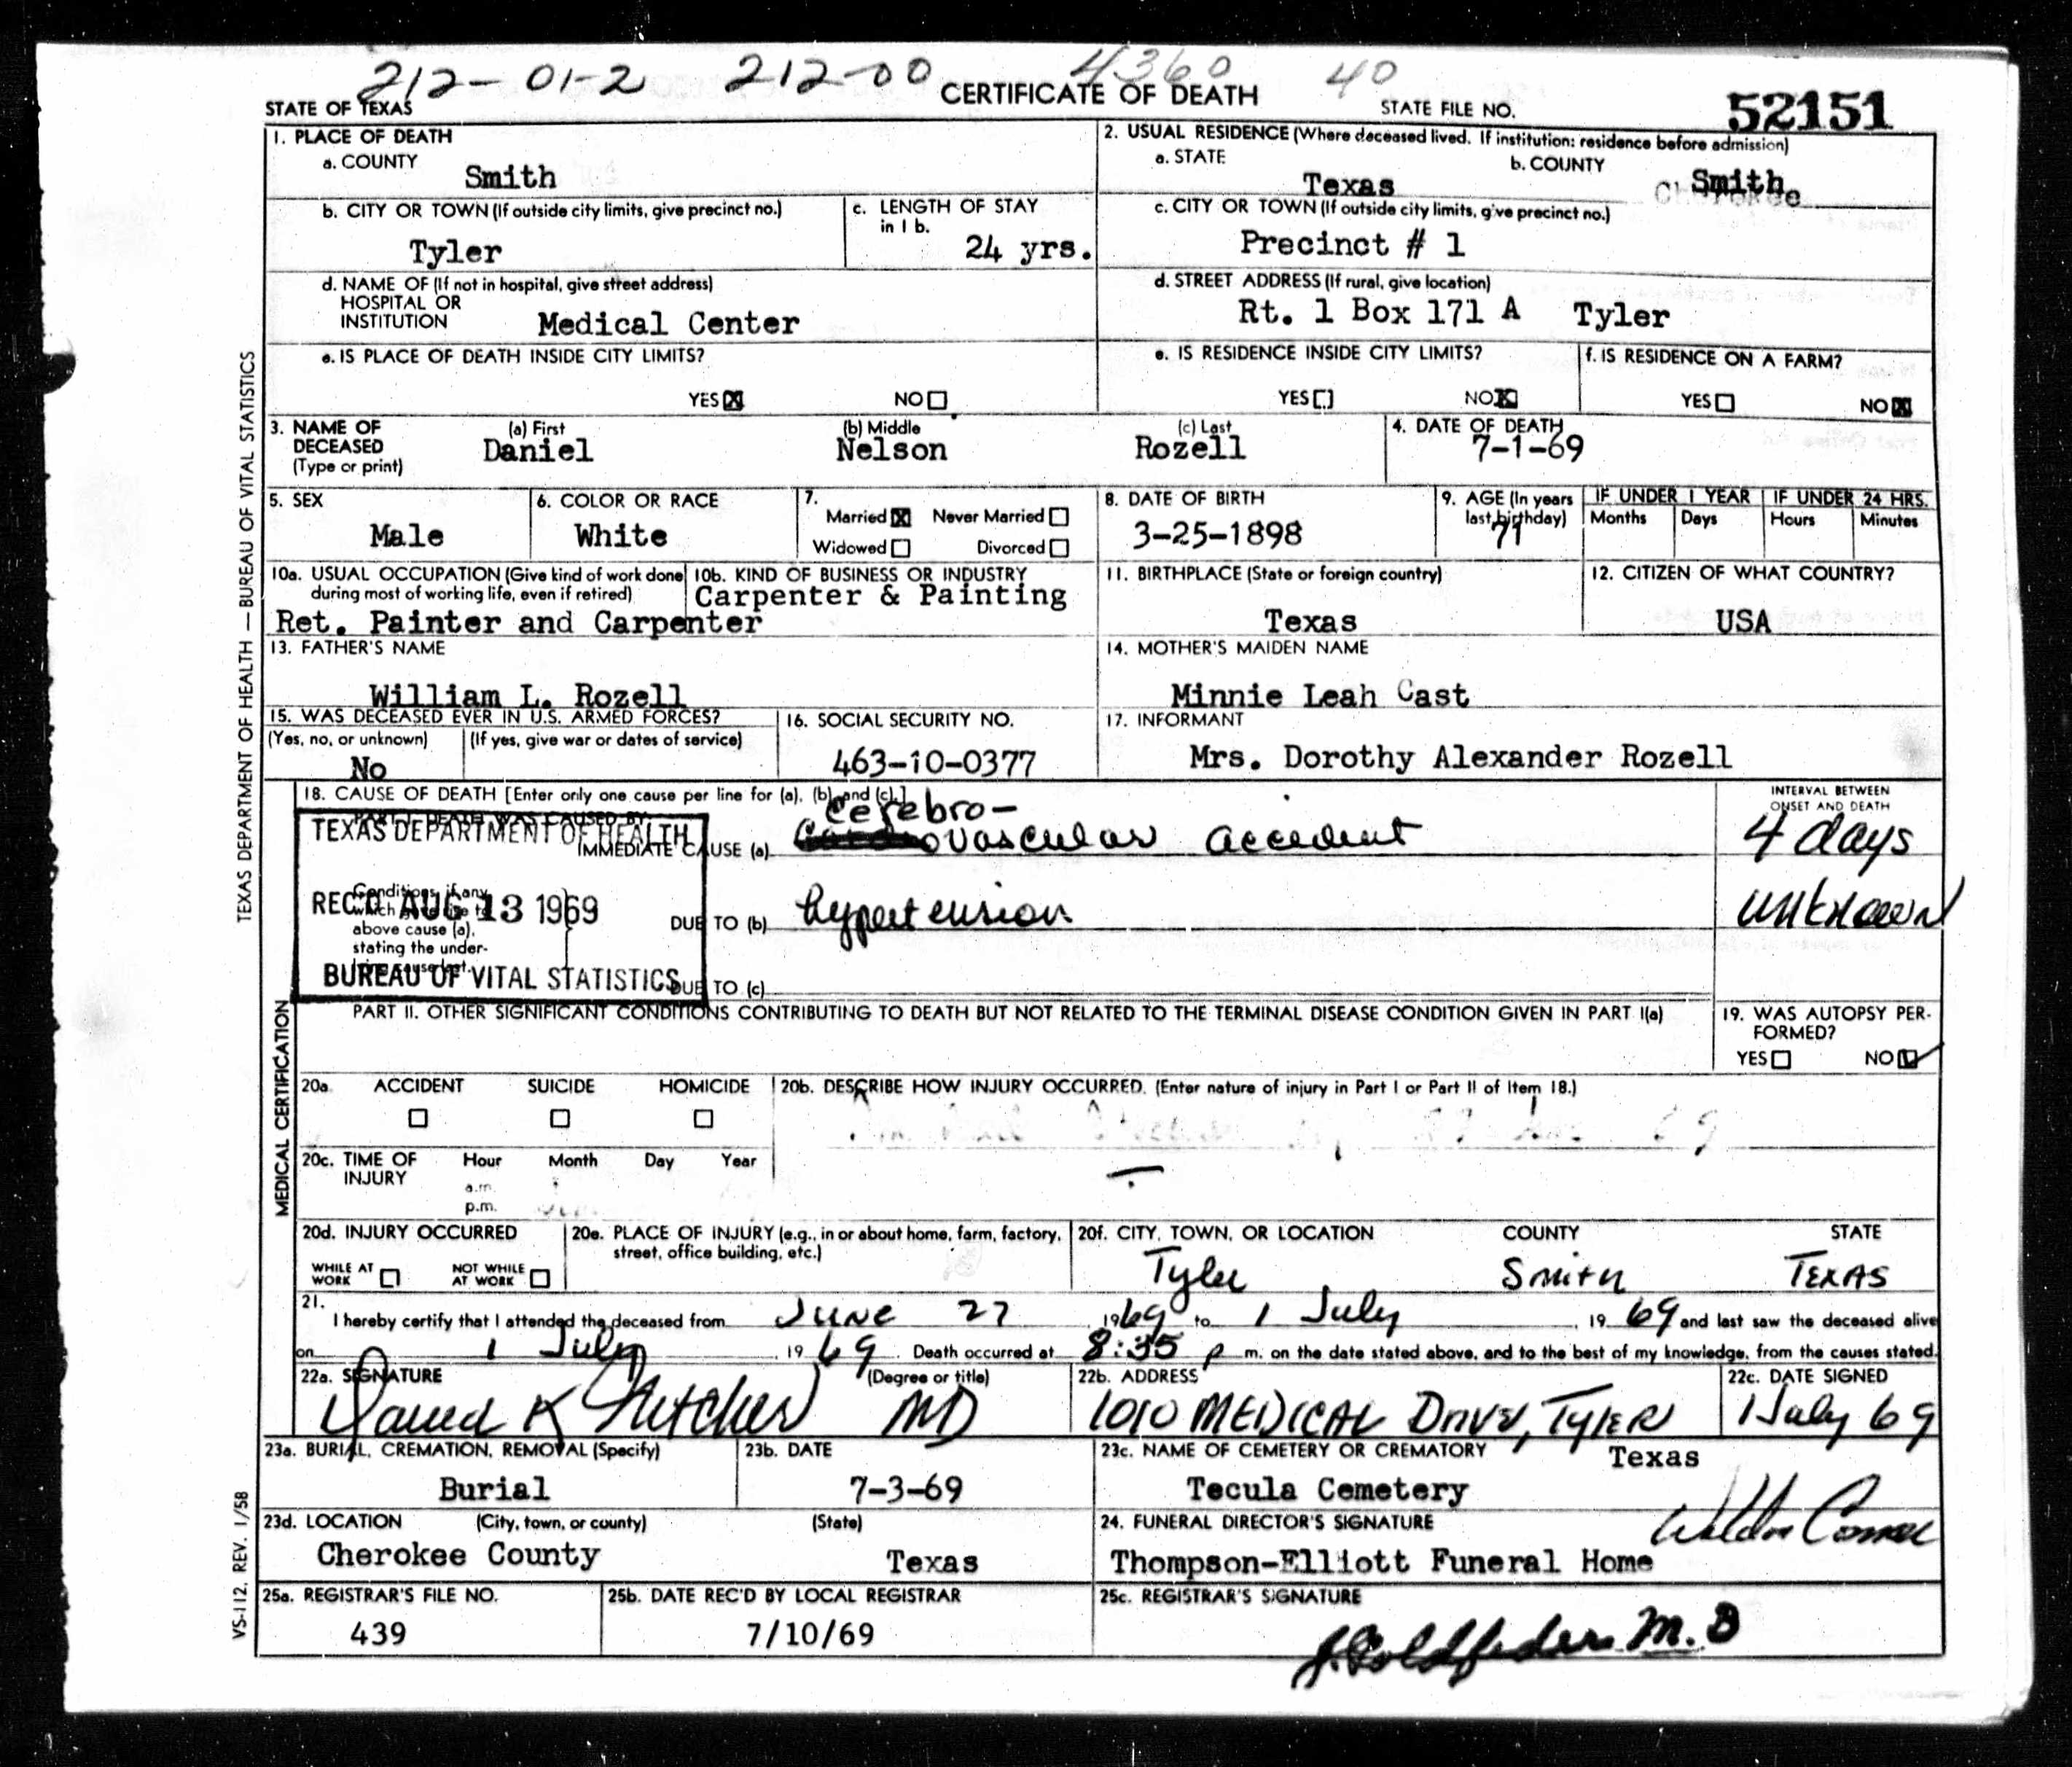 212-01-2 212-00 4360 40
STATE OF TEXAS CERTIFICATE OF DEATH STATE FILE NO. 52151
1. PLACE OF DEATH
a. COUNTY
Smith
2. USUAL RESIDENCE (Where deceased lived. If institution: residence before admission)
a. STATE
Texas
b. COUNTY
Smith
Cherokee
b. CITY OR TOWN (If outside city limits, give precinct no.)
Tyler
c. LENGTH OF STAY
in 1 b.
24 yrs.
c. CITY OR TOWN (If outside city limits, give precinct no.)
Precinct # 1
d. NAME OF (If not in hospital, give street address)
HOSPITAL OR
INSTITUTION Medical Center
d. STREET ADDRESS (If rural, give location)
Rt. 1 Box 171 A Tyler
e. IS PLACE OF DEATH INSIDE CITY LIMITS?
YES X NO
e. IS RESIDENCE INSIDE CITY LIMITS?
YES NO X
f. IS RESIDENCE ON A FARM?
YES NO X
3. NAME OF
DECEASED
(Type or print)
(a) First
Daniel
(b) Middle
Nelson
(c) Last
Rozell
4. DATE OF DEATH
7-1-69
5. SEX
Male
6. COLOR OR RACE
White
7.
Married X Never Married
Widowed Divorced
8. DATE OF BIRTH
3-25-1898
9. AGE (In years
last birthday)
71
IF UNDER 1 YEAR
Months Days
IF UNDER 24 HRS.
Hours Minutes
10a. USUAL OCCUPATION (Give kind of work done
during most of working life, even if retired)
Ret. Painter and Carpenter
10b. KIND OF BUSINESS OR INDUSTRY
Carpenter & Painting
11. BIRTHPLACE (State or foreign country)
Texas
12. CITIZEN OF WHAT COUNTRY?
USA
13. FATHER'S NAME
William L. Rozell
14. MOTHER'S MAIDEN NAME
Minnie Leah Cast
15. WAS DECEASED EVER IN U.S. ARMED FORCES?
(Yes, no, or unknown) (If yes, give war or dates of service)
No
16. SOCIAL SECURITY NO.
463-10-0377
17. INFORMANT
Mrs. Dorothy Alexander Rozell
18. CAUSE OF DEATH [Enter only one cause per line for (a), (b), and (c).]
PART I. DEATH WAS CAUSED BY:
IMMEDIATE CAUSE (a)
Cerebro-
ovascular accident
INTERVAL BETWEEN
ONSET AND DEATH
4 days
Conditions, if any,
which gave rise to
above cause (a),
stating the under-
lying cause last.
DUE TO (b) hypertension
unknown
DUE TO (c)
TEXAS DEPARTMENT OF HEALTH
REC'D AUG 13 1969
BUREAU OF VITAL STATISTICS
PART II. OTHER SIGNIFICANT CONDITIONS CONTRIBUTING TO DEATH BUT NOT RELATED TO THE TERMINAL DISEASE CONDITION GIVEN IN PART I(a)
19. WAS AUTOPSY PER-
FORMED?
YES NO
20a. ACCIDENT SUICIDE HOMICIDE
20b. DESCRIBE HOW INJURY OCCURRED. (Enter nature of injury in Part I or Part II of Item 18.)
20c. TIME OF
INJURY
Hour Month Day Year
a.m.
p.m.
20d. INJURY OCCURRED
WHILE AT
WORK
NOT WHILE
AT WORK
20e. PLACE OF INJURY (e.g., in or about home, farm, factory,
street, office building, etc.)
20f. CITY, TOWN, OR LOCATION COUNTY STATE
Tyler Smith TEXAS
21.
I hereby certify that I attended the deceased from June 27 1969 to 1 July 19 69 and last saw the deceased alive
on 1 July 19 69. Death occurred at 8:35 p m. on the date stated above, and to the best of my knowledge, from the causes stated.
22a. SIGNATURE (Degree or title)
David K Fletcher MD
22b. ADDRESS
1010 MEDICAL Drive, TYLER
Texas
22c. DATE SIGNED
1 July 69
23a. BURIAL, CREMATION, REMOVAL (Specify)
Burial
23b. DATE
7-3-69
23c. NAME OF CEMETERY OR CREMATORY
Tecula Cemetery
23d. LOCATION (City, town, or county) (State)
Cherokee County Texas
24. FUNERAL DIRECTOR'S SIGNATURE
Thompson-Elliott Funeral Home
25a. REGISTRAR'S FILE NO.
439
25b. DATE REC'D BY LOCAL REGISTRAR
7/10/69
25c. REGISTRAR'S SIGNATURE
J. Goldfeder M.D
TEXAS DEPARTMENT OF HEALTH — BUREAU OF VITAL STATISTICS
MEDICAL CERTIFICATION
VS-112. REV. 1/58